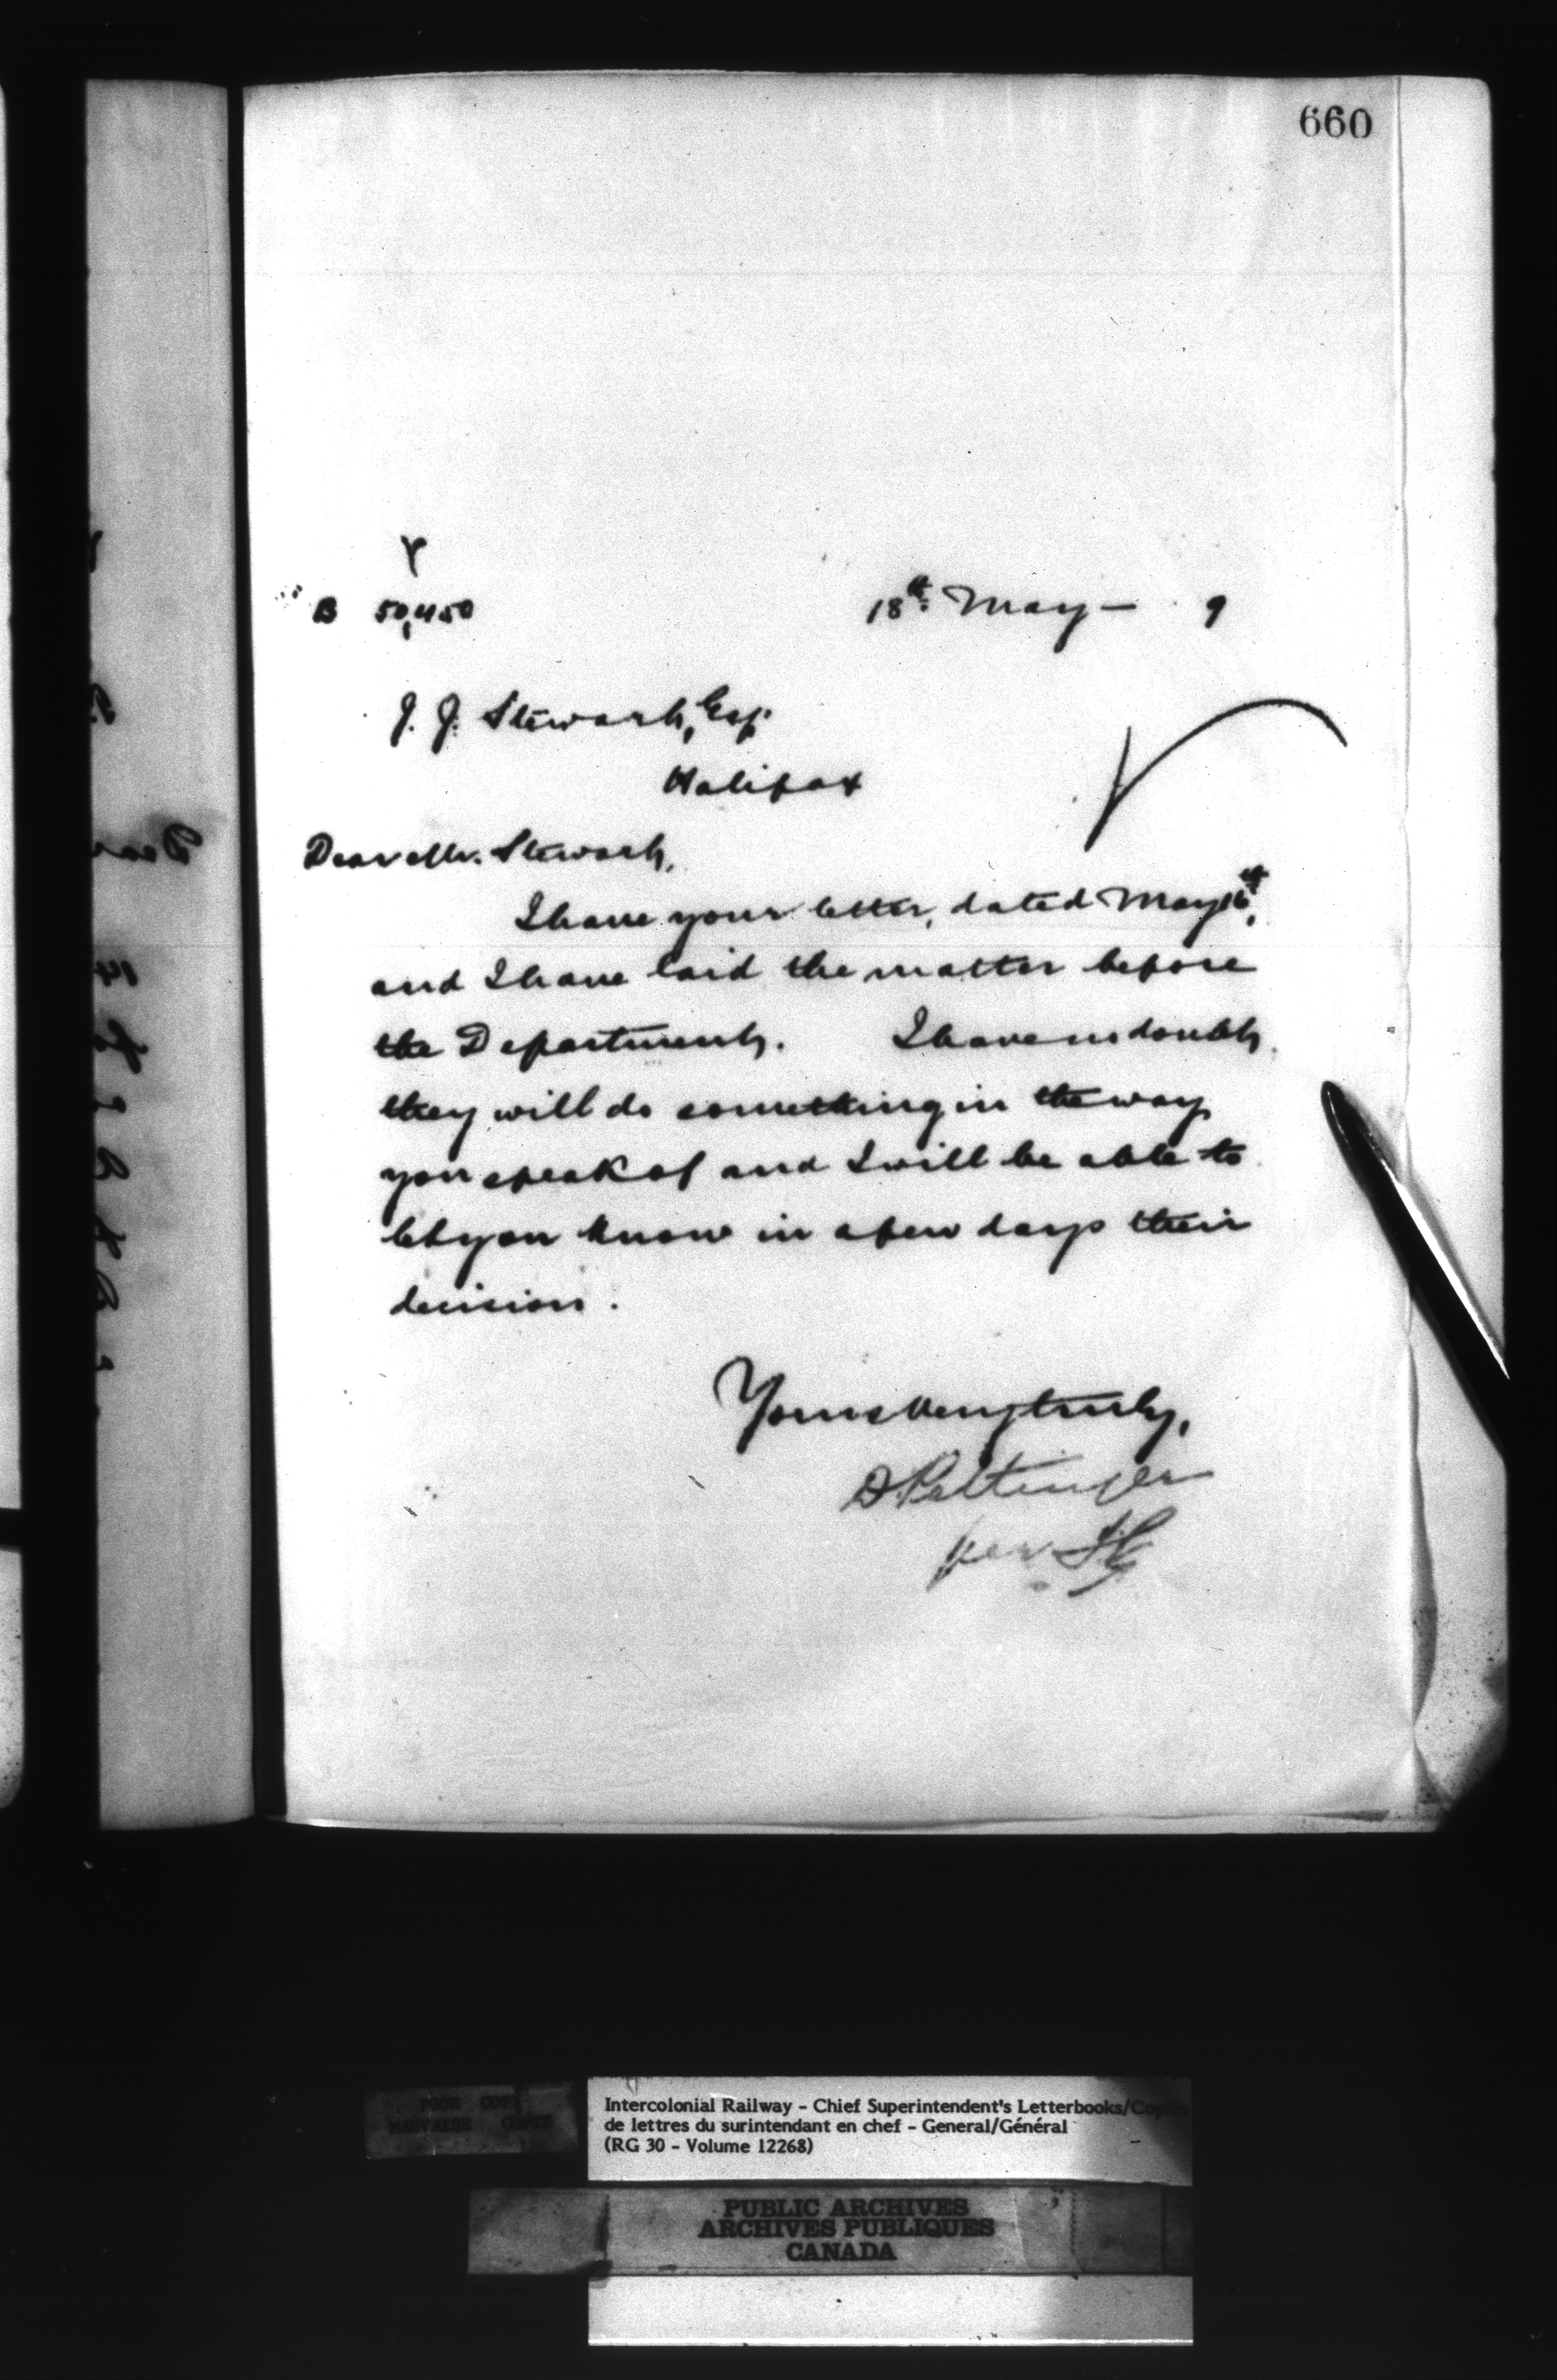 660
B 50,450
18th May — 9
J. J. Stewart, Esq.
Halifax
Dear Mr. Stewart,
I have your letter, dated May 16th,
and I have laid the matter before
the Department. I have no doubt
they will do something in the way
you speak of and I will be able to
let you know in a few days their
decision.
Yours very truly,
D. Pottinger
per
POOR COPY
MAUVAISE COPIE
Intercolonial Railway - Chief Superintendent's Letterbooks/Copies
de lettres du surintendant en chef - General/Général
(RG 30 - Volume 12268)
PUBLIC ARCHIVES
ARCHIVES PUBLIQUES
CANADA